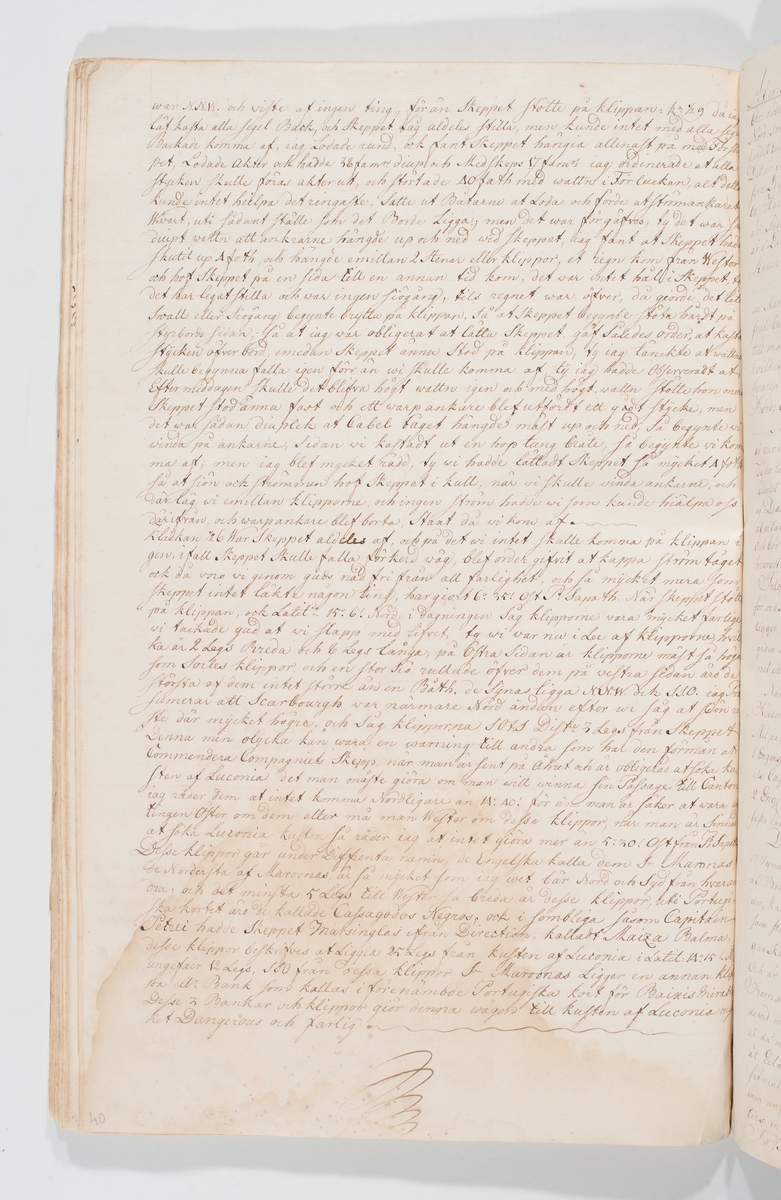 war NNW. och wiste af ingen ting, för än Skeppet stötte på klippan: kl. ½ 9 då iag
lät kasta alla segel Back, och Skeppet låg aldeles stilla, men kunde intet med alla segel
Backade komma af, iag Lodade rund, och fant Skeppet hängia allenast på med Förskep-
pet, Lodade Akter och hadde 38 famn: diup och Medskeps 17 famn: iag ordinerade at alla
stycken skulle föras akter utt, och störtade 40 fath med wattn i Förluckan, alt dett
kunde intet hielpa det ringaste, Satte ut Båtarne at Loda och förde ut strömankaret
twärt, uti sådant ställe som det Borde Ligga; men det war förgäfves, ty det war så
diupt wattn att ankarne hängde up och ned wid skeppet, iag fant at Skeppet hade
skutit up 4 foth, och hängde emillan 2 Stenar eller klippor, et regn kom från Wester
och hof Skeppet på en sida till en annan tid kom, det war intet håll i Skeppet, ty
det har legat stilla och war ingen siögång, tils regnet war öfver, då giorde det litet
Swall eller Siögång begynte brytta på klippan, Så at Skeppet begynte stöta hårdt på
styrbords sidan: Så at iag war obligerat at lätta Skeppet, gåf Således order, at kasta
Stycken öfver bord, emedan Skeppet ännu Stod på klippan, ty iag tänckte at wattnet
skulle begynna falla igen förr än wi skulle komma af, ty iag hadde Observerat at
Efter middagen skulle det blifva högt wattn igen och med högt wattn stötte hon men
Skeppet stod ännu fast och ett warp ankare blef utfördt ett gådt stycke, men
det war sådan diuplek at Cabel taget hängde mäst up och ned, Så begynte wi
winda på ankarne, Sedan wi kastadt ut en hop tung Wäte, så begynte vi kom
ma af; men iag blef mycket rädd, ty wi hadde lättadt Skeppet så mycket 4 foth
så at siön och strömmen hof Skeppet i kull, när wi skulle vinda ankarne, och
där låg wi emillan klipporne, och ingen ström hadde wi som kunde hiälpa oss
därifrån, och warpankare blef borta, Staat då wi kom af
klåckan ½ 6 War Skeppet aldeles af, och på det wi intet skulle komma på klippan i
gen, ifall Skeppet Skulle falla förkerd wäg, blef order gifvit at kappa ström tåget
och då voro wi genom guds nåd fri från all farlighet, och så mycket mera som
skeppet intet läkte någon ting, har giort 6: 35: Ost P: Sapath. När Skeppet stötte
på klippan, och Latit: 15: 6: Nord, i Dagningen Såg klipporne vara mycket farlige
wi tackade gud at wi slapp med Lifvet, ty wi war nu i Lee af klipporne, hvil-
ka är 2 Legs Breda och 6 Legs Långa; på Östra Sedan är klipporne mäst så höga
som Sories klippor, och en stor Siö rullade öfver dem på vestra sedan äro de
största af dem intet större än en Båth, de synas ligga NNW och SSO. iag Pre
sumerar att Scarbourgh war närmare Nord ändan efter wi såg at Siön re
ste där mycket högre, och Såg klipporna SO t S Dist: 3 Legs från Skeppet
Denna min olycka kan wara en warning till andra som har den förman at
Commendera Compagniet Skepp, när man är sent på Året och är obligeras at söka ku
sten af Luconia det man måste giöra om man will winna sin Passage till Canton
iag råder dem at intet komma Nordligare än 14: 40: för än man är säker at wara
tingen Oster om dem eller må man Wester om desse klippor, när man är Sinnad
at söka Luzonia kusten så råder iag at intet giöra mer än 5: 30: Ost från P: Sapat
Desse klippor går under Differenta namn, de Engelska kalla dem St Maroonas
de Nordersta af Maroonas är så mycket som iag wet bär Nord och Syd från hvaran
dra; och det minsta 5 Legs till Wester så breda är desse klippor, uti Portugi-
ska kortet äro de kallade Cassagodos Negros; och i sombliga såsom Capitain
Petrei hadde Skeppet Maksinglas ifrån Direction, kalladt Maiza Balma.
desse klippor beskrifves at Liggia 25 Legs från kusten af Luconia i Latit. 14: 15: N
ungefair 12 Legs, SSO från dessa klippor St Maroonas Ligger en annan klip
pa eller Bank som kallas i förenämbde Portugiska kort för Baixis Mirab
Desse 3 Bankar och klippor giör denna wagen till kusten af Luconia my
ket Dangerous och farlig
40